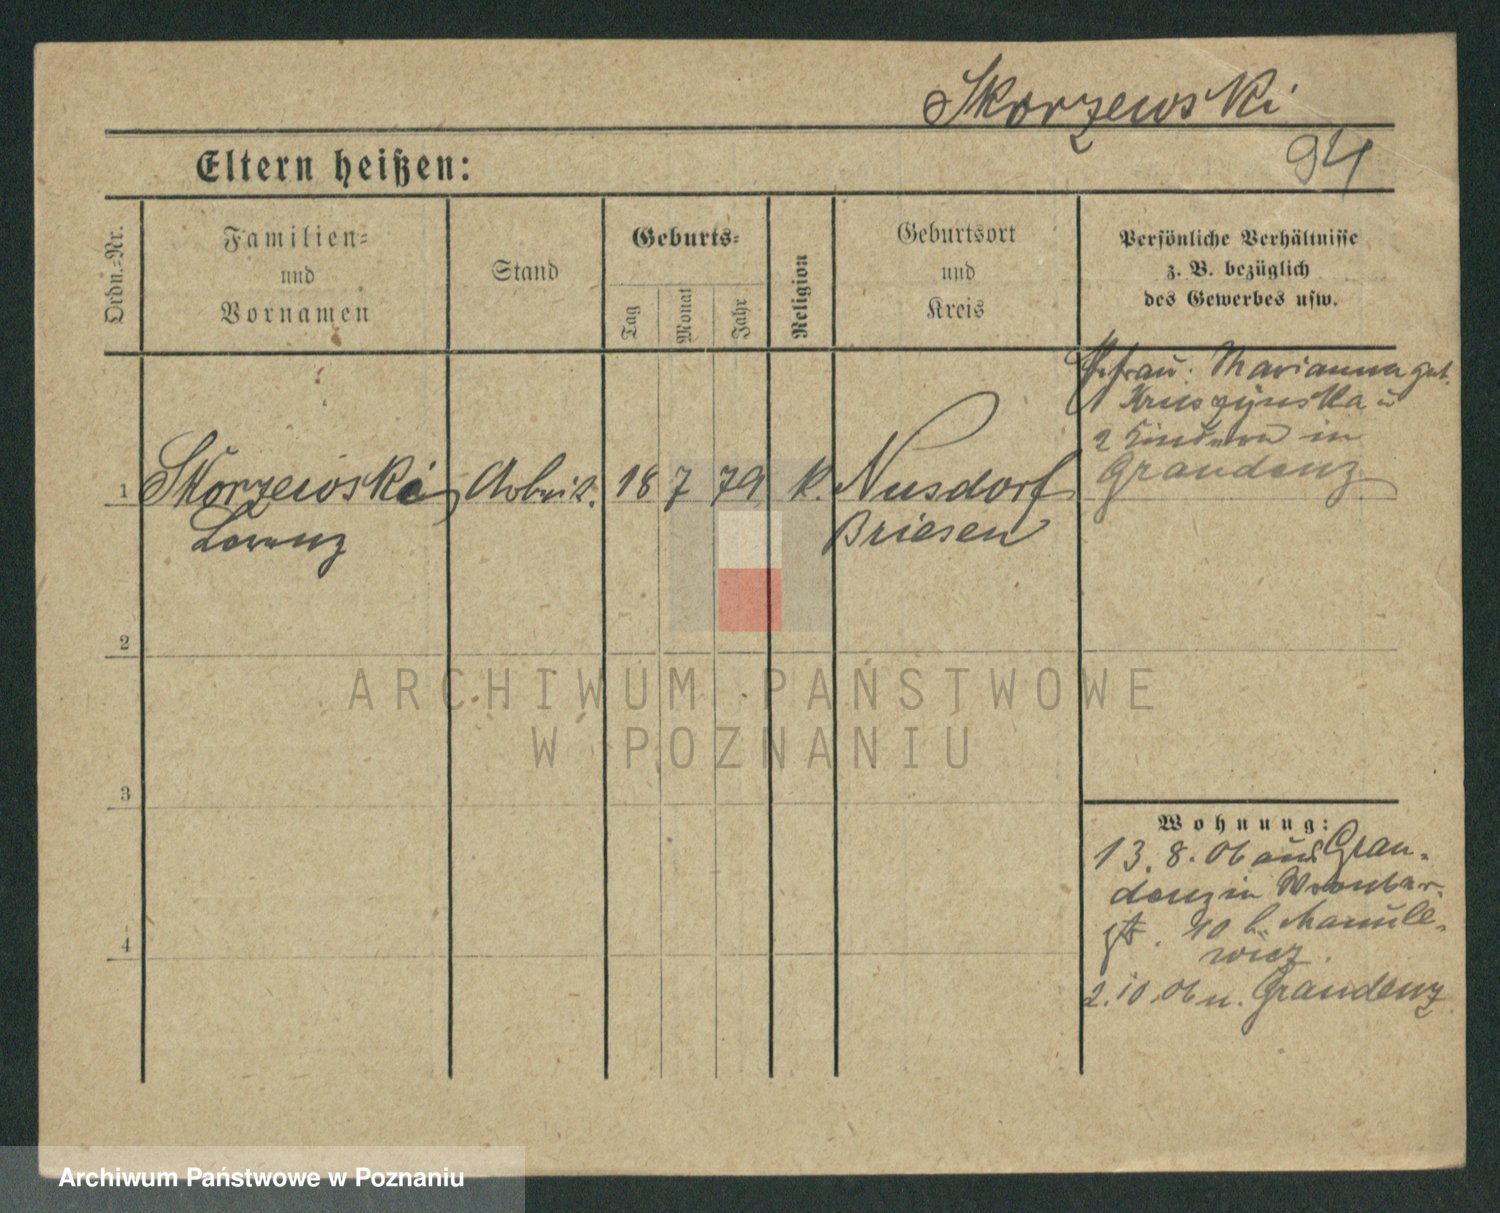 Skorzewski
94
Eltern heißen:
Ordn.-Nr.
Familien-
und
Vornamen
Stand
Geburts-
Tag
Monat
Jahr
Religion
Geburtsort
und
Kreis
Persönliche Verhältnisse
z. B. bezüglich
des Gewerbes usw.
Marianna geb.
Kruszynska u
2 Kindern in
Graudenz
1 Skorzewski, Arbeit. 18 7 79 k. Nusdorf
Lorenz Briesen
2
ARCHIWUM PAŃSTWOWE
W POZNANIU
3
Wohnung:
13. 8. 06 aus Grau-
denz in
10 b. Manule-
wicz.
4
2. 10. 06 n. Graudenz
Archiwum Państwowe w Poznaniu